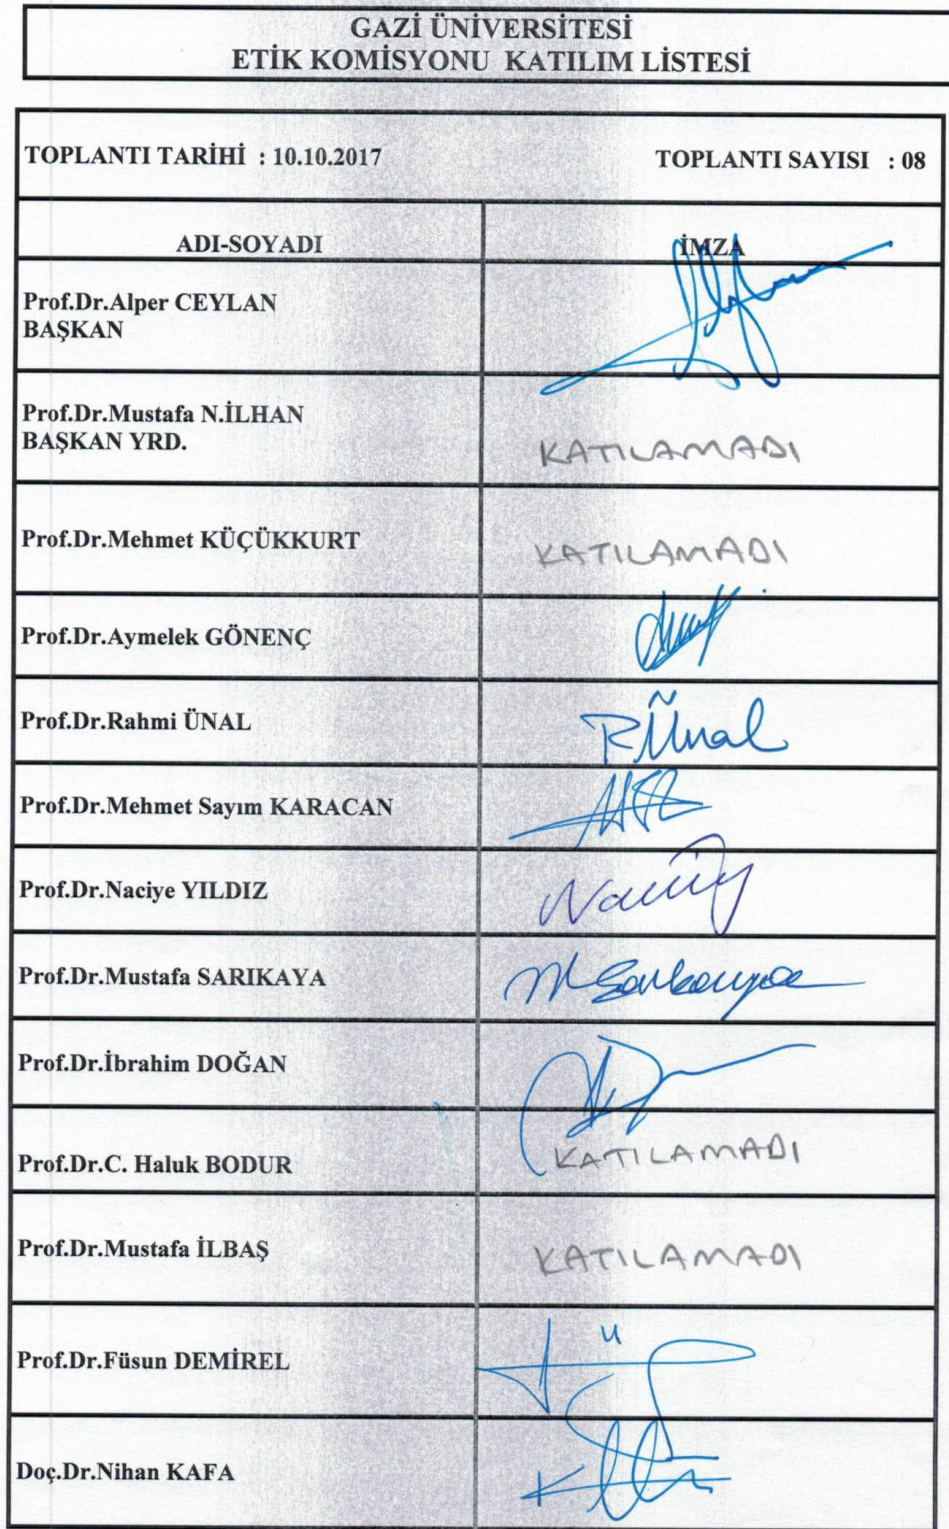 GAZİ ÜNİVERSİTESİ
ETİK KOMİSYONU KATILIM LİSTESİ
TOPLANTI TARİHİ : 10.10.2017 TOPLANTI SAYISI : 08
ADI-SOYADI İMZA
Prof.Dr.Alper CEYLAN
BAŞKAN
Prof.Dr.Mustafa N.İLHAN
BAŞKAN YRD.
KATILAMADI
Prof.Dr.Mehmet KÜÇÜKKURT KATILAMADI
Prof.Dr.Aymelek GÖNENÇ
Prof.Dr.Rahmi ÜNAL RÜnal
Prof.Dr.Mehmet Sayım KARACAN
Prof.Dr.Naciye YILDIZ
Prof.Dr.Mustafa SARIKAYA M Sarıkaya
Prof.Dr.İbrahim DOĞAN
Prof.Dr.C. Haluk BODUR KATILAMADI
Prof.Dr.Mustafa İLBAŞ KATILAMADI
Prof.Dr.Füsun DEMİREL
Doç.Dr.Nihan KAFA